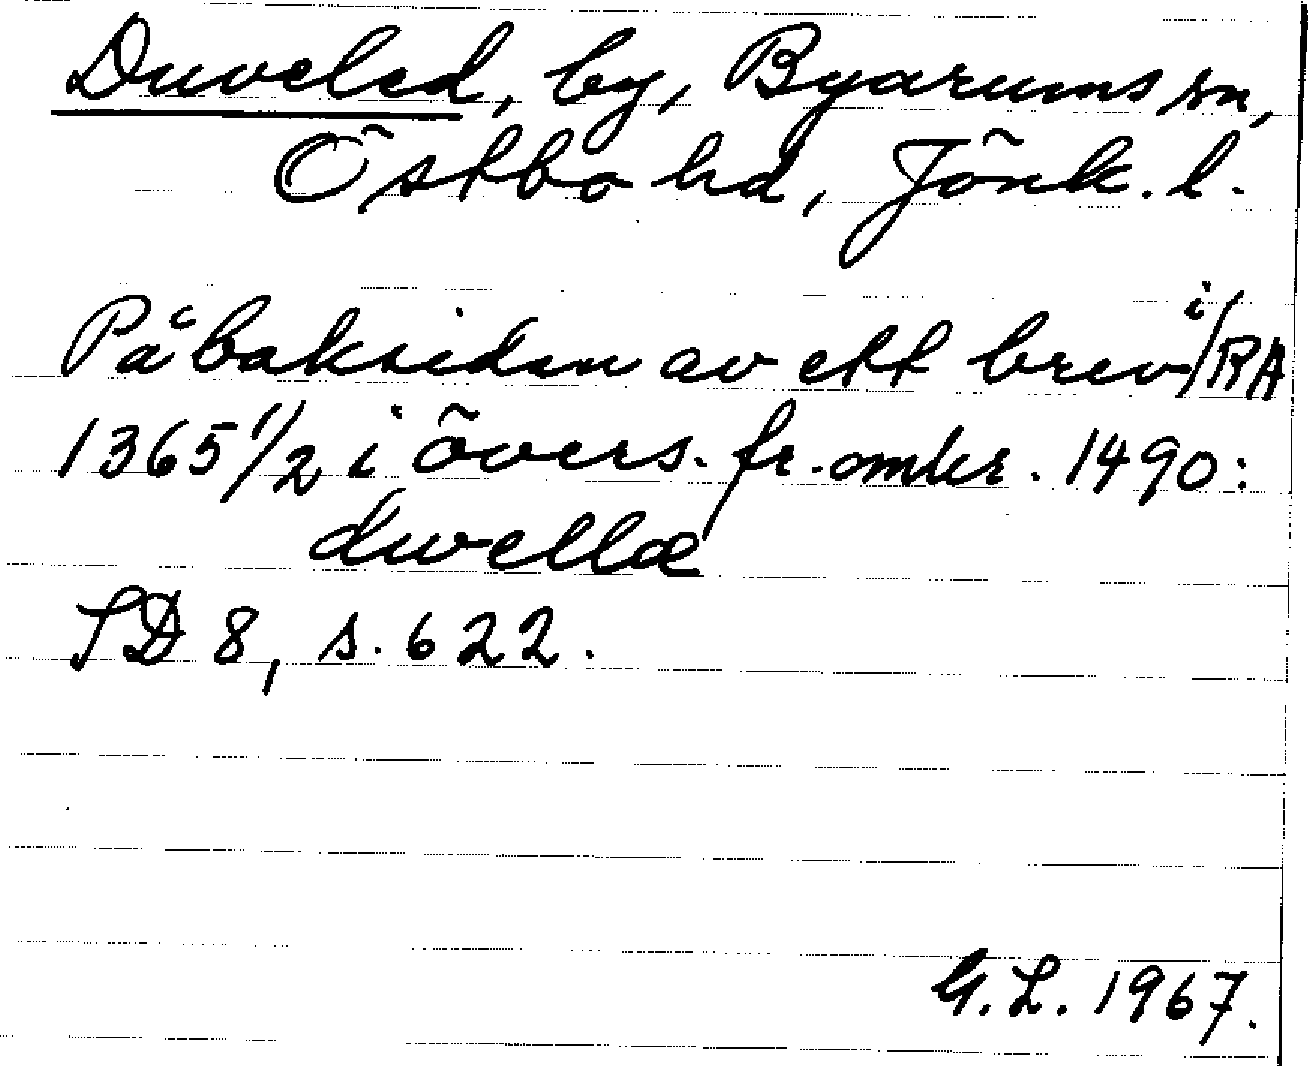 Duveled, by, Byarums sn,
Östbo hd, Jönk. l.
På baksidan av ett brev i/RA
1365 1/2 i övers. fr. omkr. 1490:
duvellæ
SD 8, s. 622.
G.L. 1967.